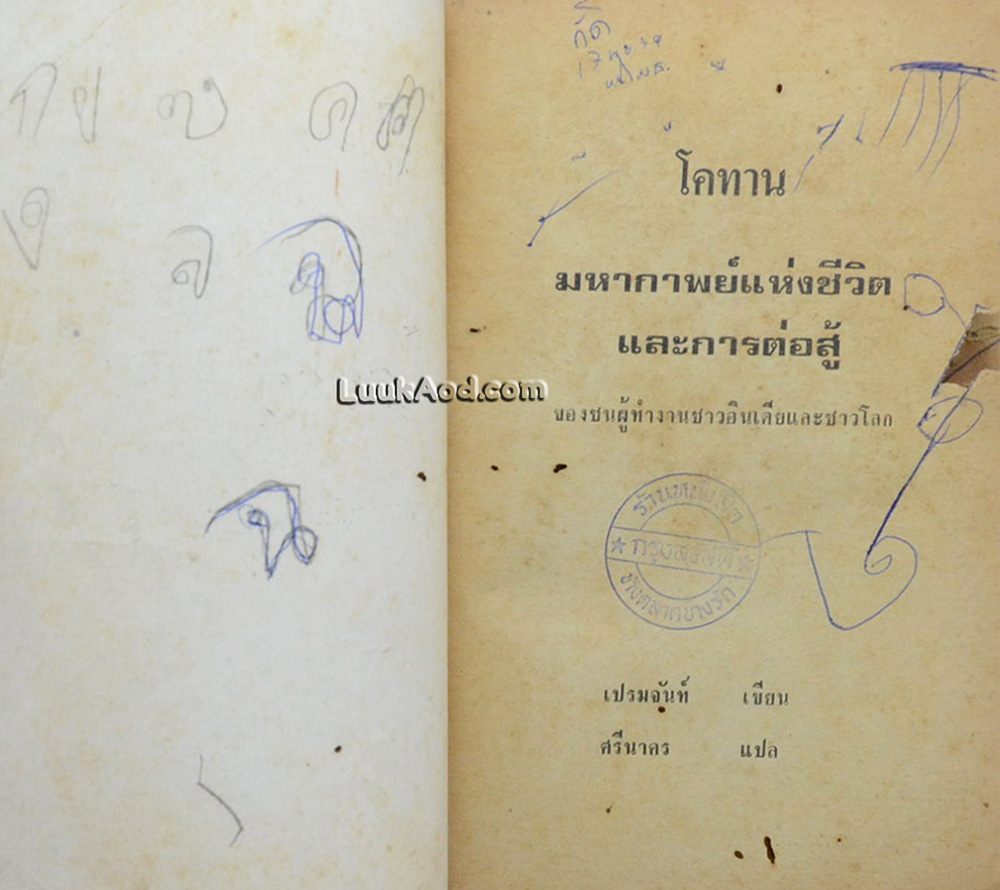 ก ข ฃ ค
ง จ
น
LuukAod.com
โคทาน
มหากาพย์แห่งชีวิต
และการต่อสู้
ของชนผู้ทำงานชาวอินเดียและชาวโลก
ร้านหนังสือ
ข้างตลาดบางรัก
เปรมจันท์ เขียน
ศรีนาคร แปล